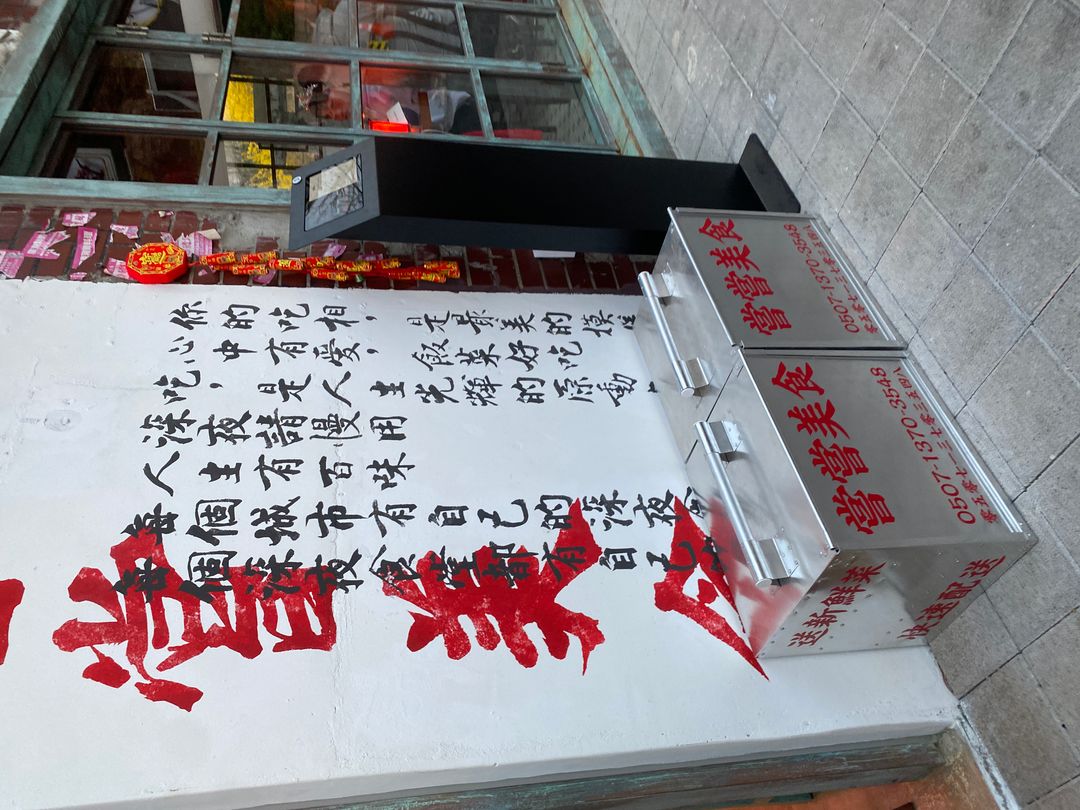 你的吃相，是最美的摸
心中有愛，飯菜好吃
吃，是人生光輝的原動
深夜請慢用
人生有百味
每個城市有自己的深夜
每個深夜食堂都有自己
嘗美食
送新鮮菜
快速配送
嘗嘗美食
0507-1370-3548
零五零七一三七零三五四八
嘗嘗美食
0507-1370-3548
零五零七一三七零三五四八